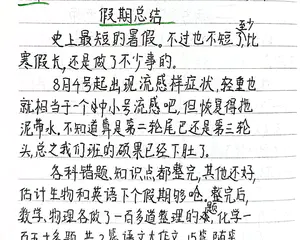 假期总结
史上最短的暑假。不过也不短了至少比
寒假长，还是做了不少事的。
8月4号起出现流感样症状，轻重也
就相当于一个中小号流感吧，但恢复得拖
泥带水，不知道算是第三轮尾巴还是第三轮
头，总之我们班的硕果已经下肚了。
各科错题、知识点都整完，其他还好，
估计生物和英语下个假期够呛。整完后，
数学、物理各做了一百多道整理的题，化学一
百五十多题